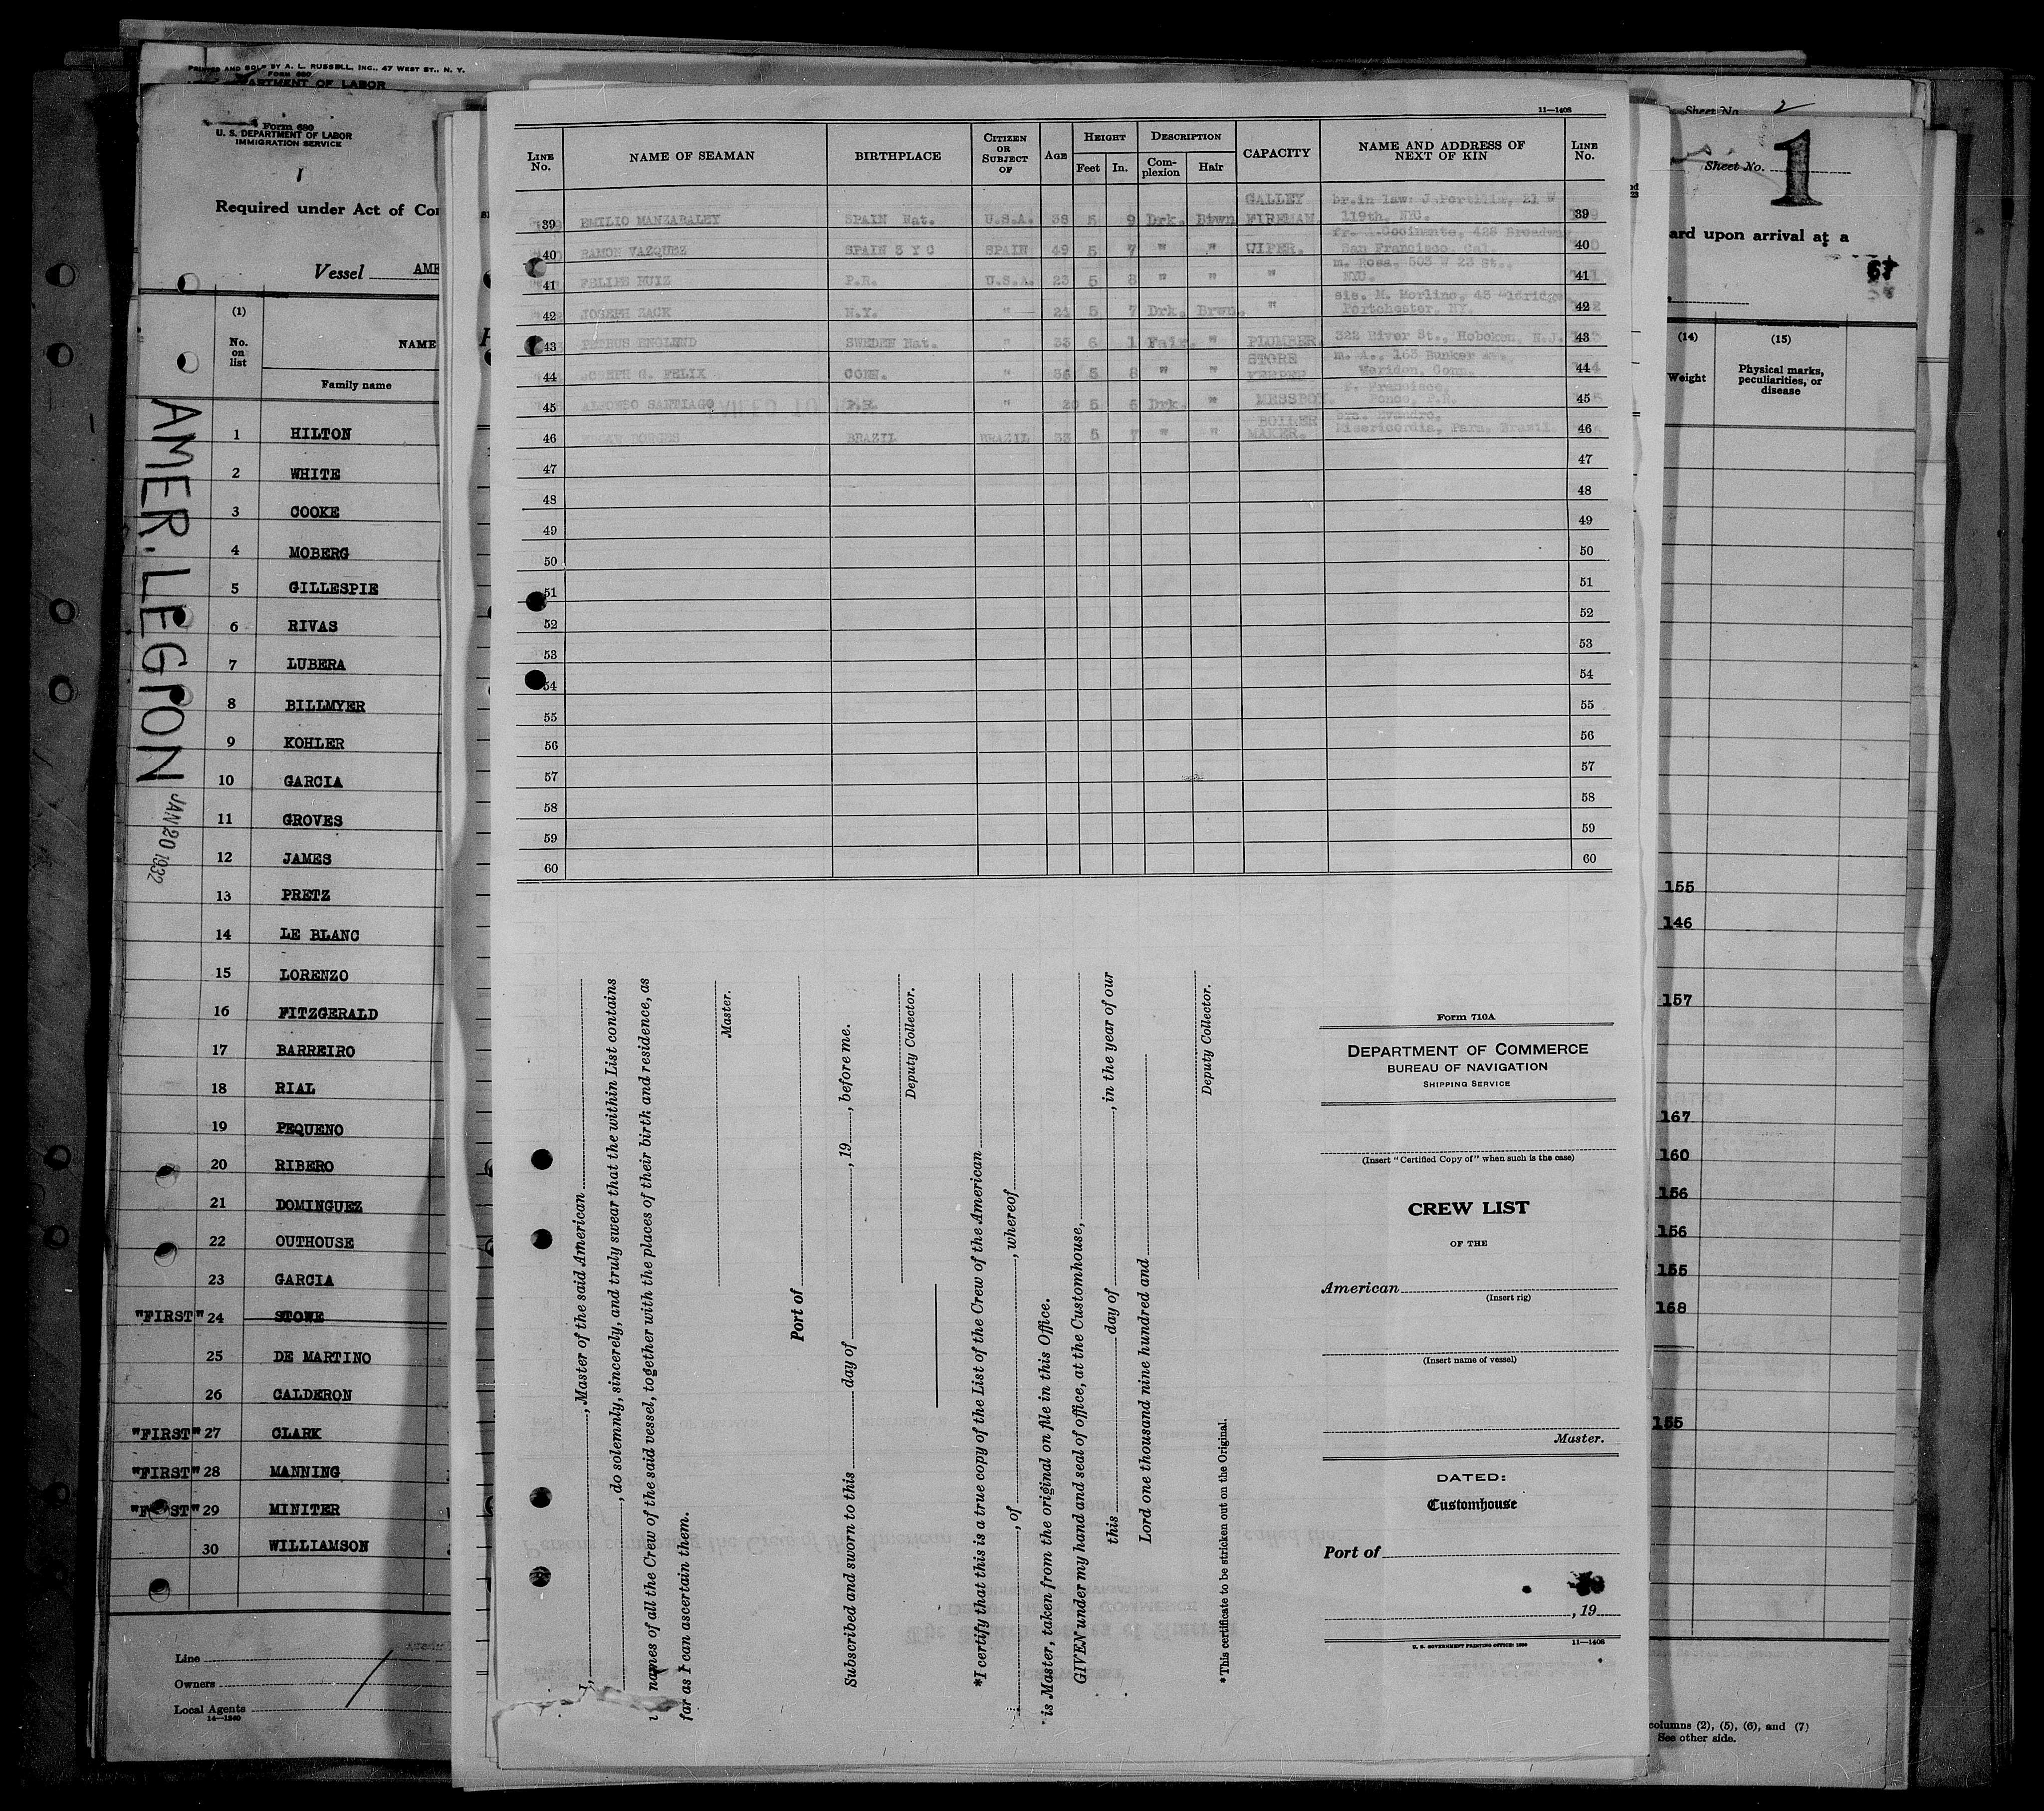 PRINTED AND SOLD BY A. L. RUSSELL, INC., 47 WEST ST., N. Y.
FORM 680
DEPARTMENT OF LABOR
Form 680
U. S. DEPARTMENT OF LABOR
IMMIGRATION SERVICE
1
Required under Act of Co
Vessel AME
(1)
No. on list
NAME
Family name
1 HILTON
2 WHITE
3 COOKE
4 MOBERG
5 GILLESPIE
6 RIVAS
7 LUBERA
8 BILLMYER
9 KOHLER
10 GARCIA
11 GROVES
12 JAMES
13 PRETZ
14 LE BLANC
15 LORENZO
16 FITZGERALD
17 BARREIRO
18 RIAL
19 PEQUENO
20 RIBERO
21 DOMINGUEZ
22 OUTHOUSE
23 GARCIA
"FIRST" 24 STOWE
25 DE MARTINO
26 CALDERON
"FIRST" 27 CLARK
"FIRST" 28 MANNING
"FIRST" 29 MINITER
30 WILLIAMSON
Line
Owners
Local Agents
14—1240
AMER. LEGION
JAN 20 1932
11—1408
LINE No. NAME OF SEAMAN BIRTHPLACE CITIZEN OR SUBJECT OF AGE HEIGHT Feet In. DESCRIPTION Complexion Hair CAPACITY NAME AND ADDRESS OF NEXT OF KIN LINE No.
39 EMILIO MANZARALEY SPAIN Nat. U.S.A. 38 5 9 Drk. Brwn GALLEY FIREMAN. br.in law: J.Portilla, 21 W 119th, NYC. 39
40 RAMON VAZQUEZ SPAIN 3 Y C SPAIN 49 5 7 " " WIPER. 428 Broadway, San Francisco, Cal. 40
41 FELIPE RUIZ P.R. U.S.A. 23 5 8 " " " m. Rosa, 503 W 23 St., NYC. 41
42 JOSEPH ZACK N.Y. " 21 5 7 Drk. Brwn. " sis. M. Morlino, 43 Portchester, NY. 42
43 PETRUS ENGLUND SWEDEN Nat. " 33 6 1 Fair. " PLUMBER. 322 River St., Hoboken, N.J. 43
44 JOSEPH G. FELIX CONN. " 34 5 8 " " STORE KEEPER m. A., 163 Bunker Av., Meriden, Conn. 44
45 ALFONSO SANTIAGO P.R. " 20 5 6 Drk. " MESSBOY. F. Francisco, Ponce, P.R. 45
46 BORGES BRAZIL BRAZIL 33 5 7 " " BOILER MAKER. bro. Evandro, Misericordia, Para, Brazil. 46
47 47
48 48
49 49
50 50
51 51
52 52
53 53
54 54
55 55
56 56
57 57
58 58
59 59
60 60
I, , Master of the said American
, do solemnly, sincerely, and truly swear that the within List contains
names of all the Crew of the said vessel, together with the places of their birth and residence, as
far as I can ascertain them.
Master.
Port of
Subscribed and sworn to this day of , 19 , before me.
Deputy Collector.
*I certify that this is a true copy of the List of the Crew of the American
, of , whereof
is Master, taken from the original on file in this Office.
GIVEN under my hand and seal of office, at the Customhouse,
this day of , in the year of our
Lord one thousand nine hundred and
Deputy Collector.
*This certificate to be stricken out on the Original.
Form 710A
DEPARTMENT OF COMMERCE
BUREAU OF NAVIGATION
SHIPPING SERVICE
(Insert "Certified Copy of" when such is the case)
CREW LIST
OF THE
American
(Insert rig)
(Insert name of vessel)
Master.
DATED:
Customhouse
Port of
, 19
U. S. GOVERNMENT PRINTING OFFICE: 1930 11—1408
Sheet No. 2
Sheet No. 1
ard upon arrival at a
(14) (15)
Weight Physical marks, peculiarities, or disease
155
146
157
167
160
156
156
155
168
155
columns (2), (5), (6), and (7)
See other side.